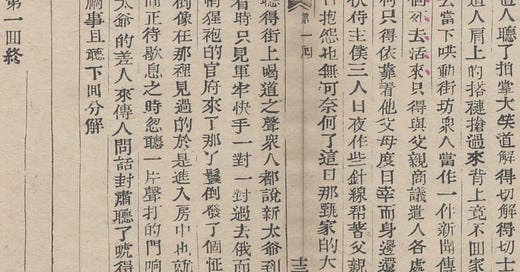 道人聽了拍掌大笑道解得切解得切士
道人肩上的搭褳搶過來背上竟不回家
去當下哄動街坊衆人當作一件新聞傳
個死去活來只得與父親商議遣人各處
何只得依靠着他父母度日幸而身邊還
伏侍主僕三人日夜作些針線帮着父親
日抱怨也無可奈何了這日那甄家的大
第一回
十三
聽得街上喝道之聲衆人都說新太爺到
看時只見軍牢快手一對一對過去俄而
帽猩袍的官府來了那丫鬟倒發了個怔
倒像在那裡見過的於是進入房中也
間正待歇息之時忽聽一片聲打的門响
太爺的差人來傳人問話封肅聽了唬得
禍事且聽下回分解
第一回終